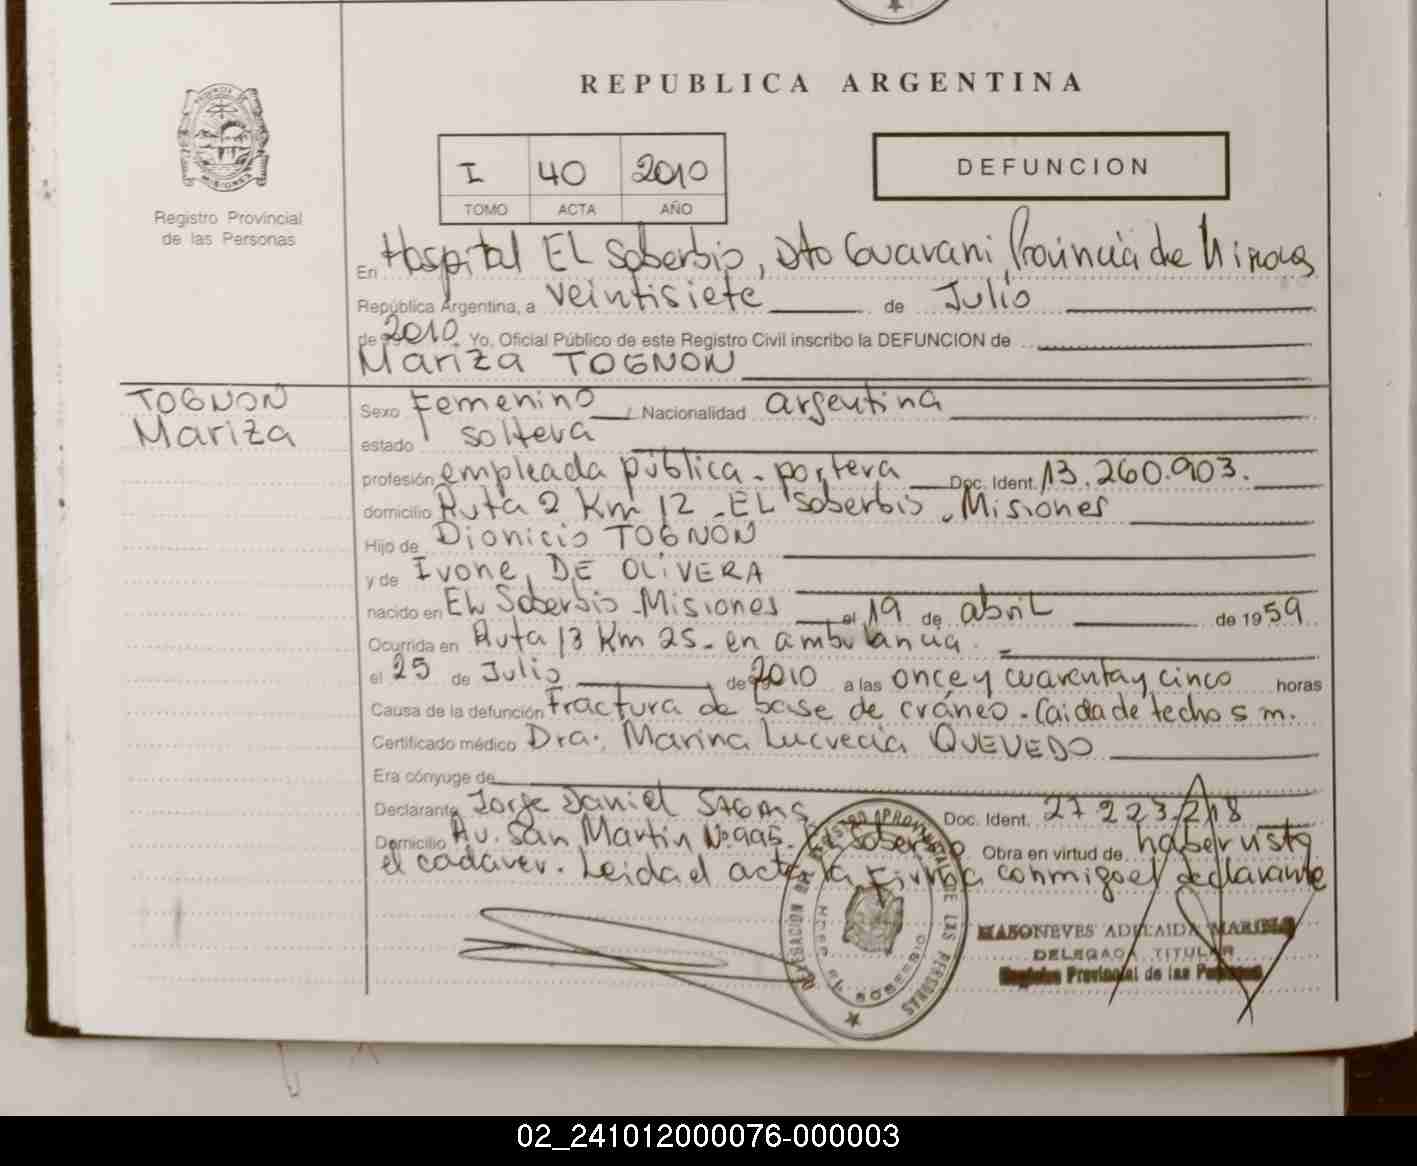 REPUBLICA ARGENTINA
MISIONES
Registro Provincial
de las Personas
I 40 2010
TOMO ACTA AÑO
DEFUNCION
En Hospital EL Soberbio, Dto Guarani, Provincia de Misiones
República Argentina, a veintisiete de Julio
de 2010. Yo, Oficial Público de este Registro Civil inscribo la DEFUNCION de
Mariza TOGNON
TOGNON
Mariza
Sexo Femenino / Nacionalidad argentina
estado soltera
profesión empleada pública - portera Doc. Ident. 13.260.903.
domicilio Ruta 2 Km 12 - EL Soberbio - Misiones
Hijo de Dionicio TOGNON
y de Ivone, DE OLIVERA
nacido en EL Soberbio - Misiones el 19 de abril de 1959
Ocurrida en Ruta 13 Km 25 - en ambulancia.
el 25 de Julio de 2010 a las once y cuarenta y cinco horas
Causa de la defunción Fractura de base de cráneo - Caida de techo 5 m.
Certificado médico Dra. Marina Lucrecia QUEVEDO
Era cónyuge de
Declarante Jorge Daniel Doc. Ident. 27 223.218
Domicilio Av. San Martín Nº 995. El Soberbio Obra en virtud de haber visto
el cadaver. Leida el acta la firma conmigo el declarante
DELEGACION DEL REGISTRO PROVINCIAL DE LAS PERSONAS
EL SOBERBIO
MASONEVES ADELAIDA
DELEGADA TITULAR
Registro Provincial de las Personas
02_241012000076-000003